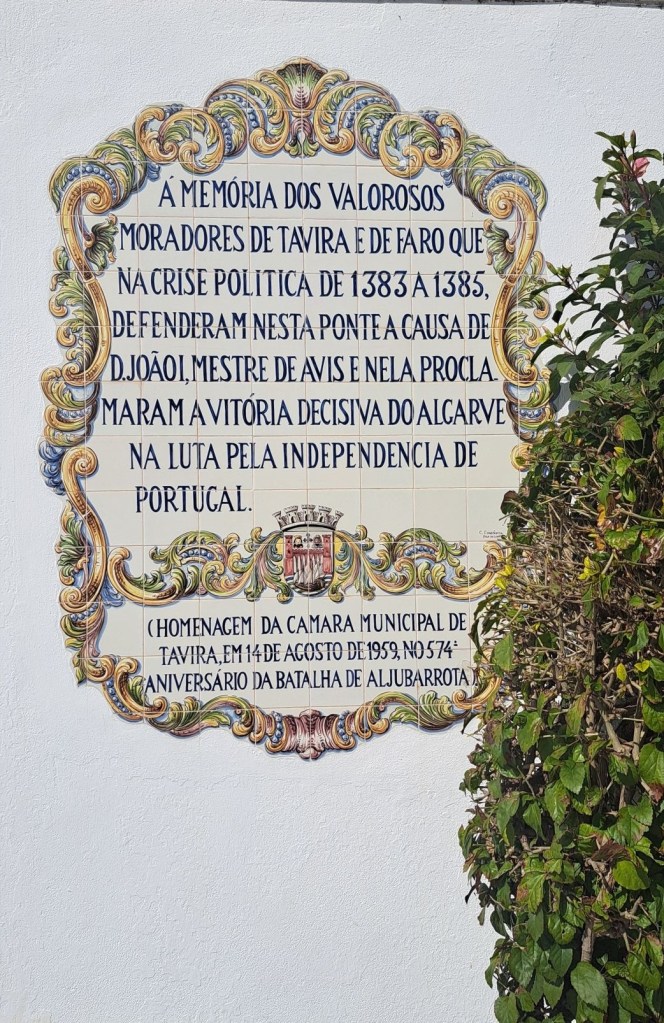 Á MEMÓRIA DOS VALOROSOS
MORADORES DE TAVIRA E DE FARO QUE
NA CRISE POLITICA DE 1383 A 1385,
DEFENDERAM NESTA PONTE A CAUSA DE
D.JOÃO I, MESTRE DE AVIS E NELA PROCLA-
MARAM A VITÓRIA DECISIVA DO ALGARVE
NA LUTA PELA INDEPENDENCIA DE
PORTUGAL.
(HOMENAGEM DA CAMARA MUNICIPAL DE
TAVIRA, EM 14 DE AGOSTO DE 1959, NO 574º
ANIVERSÁRIO DA BATALHA DE ALJUBARROTA)